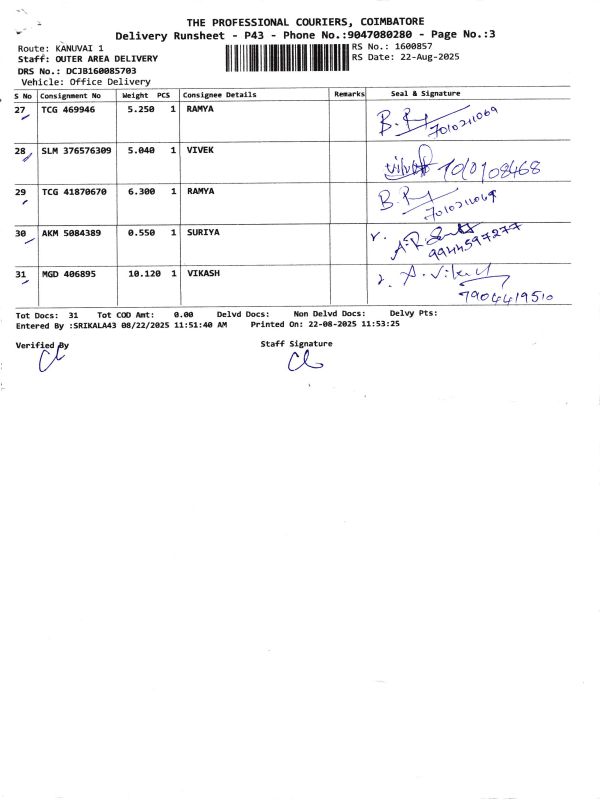 THE PROFESSIONAL COURIERS, COIMBATORE
Delivery Runsheet - P43 - Phone No.:9047080280 - Page No.:3
Route: KANUVAI 1 RS No.: 1600857
Staff: OUTER AREA DELIVERY RS Date: 22-Aug-2025
DRS No.: DCJB160085703
Vehicle: Office Delivery
S No Consignment No Weight PCS Consignee Details Remarks Seal & Signature
27 TCG 469946 5.250 1 RAMYA
7010211069
28 SLM 376576309 5.040 1 VIVEK
29 TCG 41870670 6.300 1 RAMYA
7010211069
30 AKM 5084389 0.550 1 SURIYA
9944597277
31 MGD 406895 10.120 1 VIKASH
7904419510
Tot Docs: 31 Tot COD Amt: 0.00 Delvd Docs: Non Delvd Docs: Delvy Pts:
Entered By :SRIKALA43 08/22/2025 11:51:40 AM Printed On: 22-08-2025 11:53:25
Verified By Staff Signature